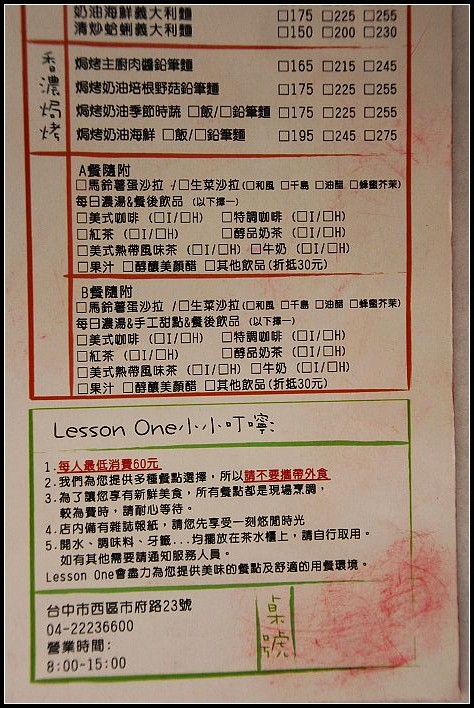 奶油海鮮義大利麵 □175 □225 □255
清炒蛤蜊義大利麵 □150 □200 □230
香濃焗烤
焗烤主廚肉醬鉛筆麵 □165 □215 □245
焗烤奶油培根野菇鉛筆麵 □175 □225 □255
焗烤奶油季節時蔬 □飯/□鉛筆麵 □175 □225 □255
焗烤奶油海鮮 □飯/□鉛筆麵 □195 □245 □275
A餐隨附
□馬鈴薯蛋沙拉 /□生菜沙拉(□和風 □千島 □油醋 □蜂蜜芥茉)
每日濃湯&餐後飲品 (以下擇一)
□美式咖啡 (□I/□H) □特調咖啡 (□I/□H)
□紅茶 (□I/□H) □醇品奶茶 (□I/□H)
□美式熱帶風味茶 (□I/□H) □牛奶 (□I/□H)
□果汁 □醇釀美顏醋 □其他飲品(折抵30元)
B餐隨附
□馬鈴薯蛋沙拉 /□生菜沙拉(□和風 □千島 □油醋 □蜂蜜芥茉)
每日濃湯&手工甜點&餐後飲品 (以下擇一)
□美式咖啡 (□I/□H) □特調咖啡 (□I/□H)
□紅茶 (□I/□H) □醇品奶茶 (□I/□H)
□美式熱帶風味茶 (□I/□H) □牛奶 (□I/□H)
□果汁 □醇釀美顏醋 □其他飲品(折抵30元)
Lesson One小小叮嚀:
1.每人最低消費60元
2.我們為您提供多種餐點選擇，所以請不要攜帶外食
3.為了讓您享有新鮮美食，所有餐點都是現場烹調，
較為費時，請耐心等待。
4.店內備有雜誌報紙，請您先享受一刻悠閒時光
5.開水、調味料、牙籤...均擺放在茶水櫃上，請自行取用。
如有其他需要請通知服務人員。
Lesson One會盡力為您提供美味的餐點及舒適的用餐環境。
台中市西區市府路23號
04-22236600
營業時間:
8:00-15:00
桌號